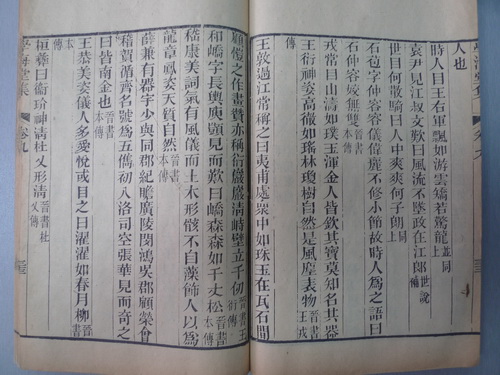 學海堂集
卷九
人也
時人目王右軍飄如游雲矯若驚龍 並同上
袁尹見江叔文歎曰風流不墜政在江郎 世說補
世目何散騎曰人中爽爽何子朗 同上
石苞字仲容容儀偉麗不修小節故時人爲之語曰
石仲容姣無雙 晉書本傳
戎常目山濤如璞玉渾金人皆欽其寶莫知名其器
王衍神姿高徹如瑤林瓊樹自然是風塵表物 王戎傳
王敦過江常稱之曰夷甫處衆中如珠玉在瓦石間
顧愷之作畫贊亦稱衍巖巖清峙壁立千仞 晉書王衍傳
和嶠字長輿庾顗見而歎曰嶠森森如千丈松 晉書本傳
嵇康美詞氣有風儀而土木形骸不自藻飾人以爲
龍章鳳姿天質自然 晉書本傳
薛兼有器宇少與同郡紀瞻廣陵閔鴻吳郡顧榮會
稽賀循齊名號爲五儁初入洛司空張華見而奇之
曰皆南金也 晉書本傳
王恭美姿儀人多愛悅或目之曰濯濯如春月柳 晉書本傳
桓彝曰衞玠神清杜乂形清 晉書杜乂傳
學海堂集
卷九